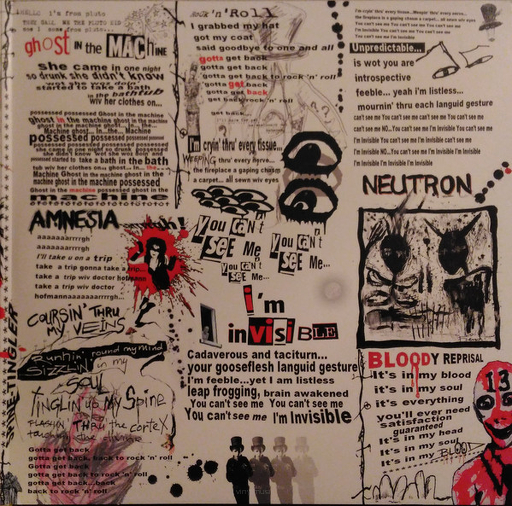 ghost IN the MACHINE
she came in one night
so drunk she didn't know
started to take a bath
in the bathtub
wiv her clothes on...
possessed possessed possessed Ghost in the machine
ghost in the machine possessed possessed
possessed possessed possessed
started to take a bath in the bath
tub wiv her clothes on
Machine Ghost in the machine the machine
machine ghost in the machine possessed
Ghost in the machine possessed ghost in the
machine
AMNESIA
aaaaaarrrrgh
aaaaaarrrrgh
I'll take u on a trip
take a trip gonna take a trip..
take a trip wiv docter
take a trip wiv docter
hofmannaaaaaarrrrgh...
uh!
COURSIN' THRU
MY VEINS
Runnin' round my mind
SIZZLIN in my
SOUL
TINGLIN UP MY Spine
FLASHIN' THRU the corteX
SPINE TINGLER
Gotta get back
gotta get back..back to rock 'n' roll
Gotta get back
gotta get back to rock 'n' roll
gotta get back...back
back to rock 'n' roll
ROCK 'n' ROLL
I grabbed my hat
got my coat
said goodbye to one and all
gotta get back
gotta get back to rock 'n' roll
gotta get back
gotta get back
get back rock 'n' roll
get back...
I'm cryin' thru' every tissue...
WEEPING thru' every nerve...
the fireplace a gaping chasm
a carpet... all sewn wiv eyes
You CAN't SEE Me
You CAN't SEE Me
You CAN't SEE Me...
i'm
inVISIBLE
Cadaverous and taciturn...
your gooseflesh languid gesture
I'm feeble...yet I am listless
leap frogging, brain awakened
You can't see Me You can't see Me
You can't see me I'm Invisible
I'm cryin' thru' every tissue...Weepin' thru' every nerve...
the fireplace is a gaping chasm a carpet... all sewn wiv eyes
You can't see me I'm Invisible
Unpredictable...
is wot you are
introspective
feeble... yeah i'm listless..
mournin' thru each languid gesture
can't see me You can't see me You can't see me
can't see me NO...You can't see me I'm Invisible You can't see
I'm Invisible You can't see me I'm Invisible
I'm Invisible NO...You can't see me I'm Invisible I'm Invisible
I'm Invisible I'm Invisible I'm Invisible
NEUTRON
BLOODY REPRISAL
it's in my blood
it's in my soul
it's everything
you'll ever need
satisfaction
guaranteed
It's in my head
It's in my soul
It's in my BLOOD
13